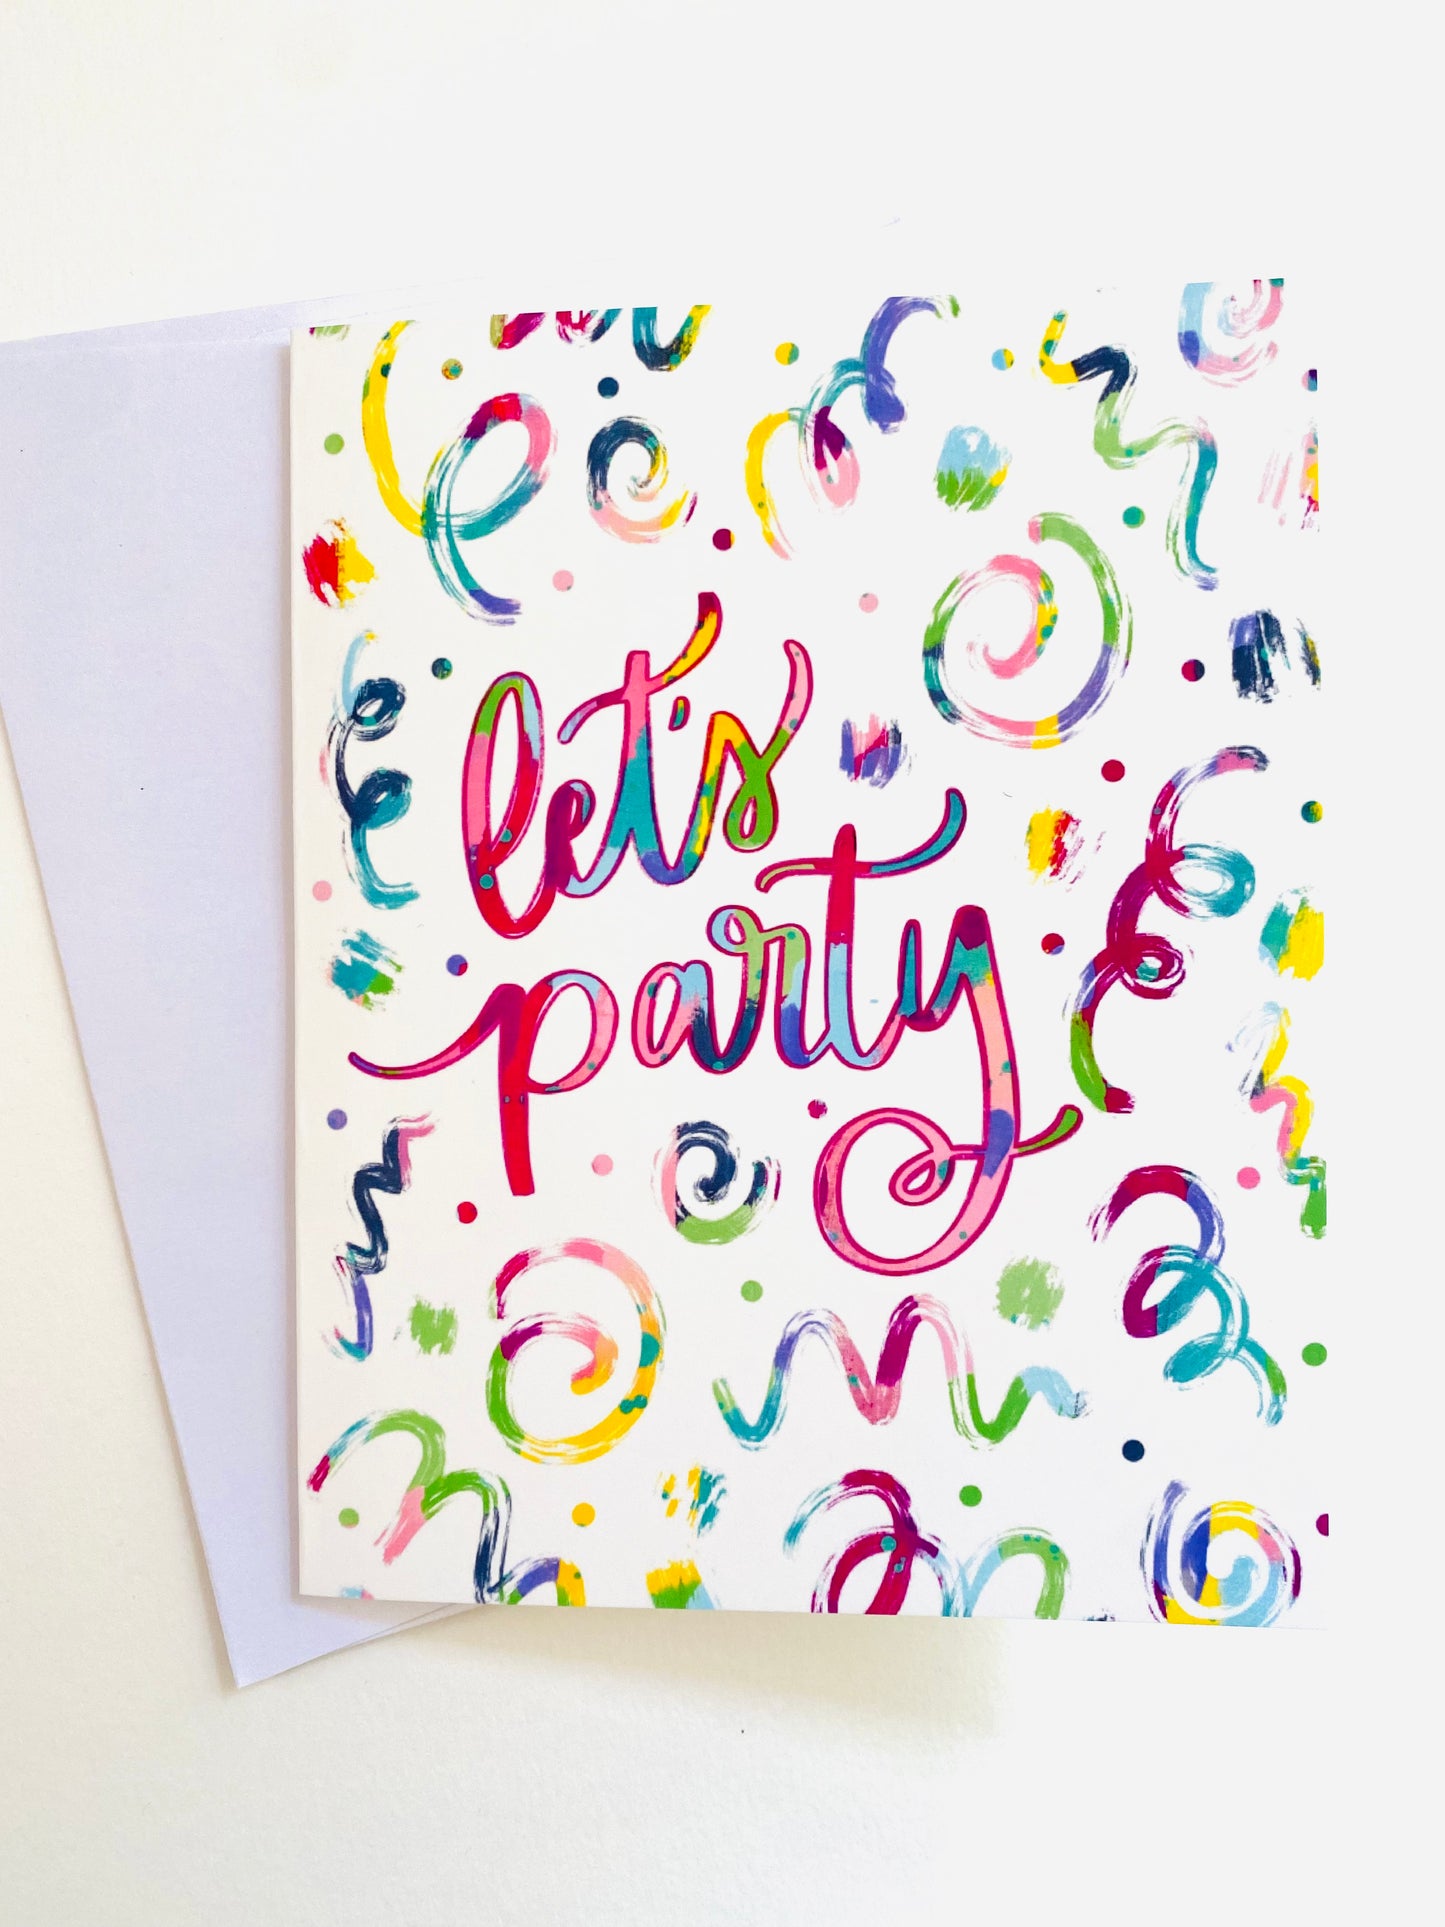 let's
party